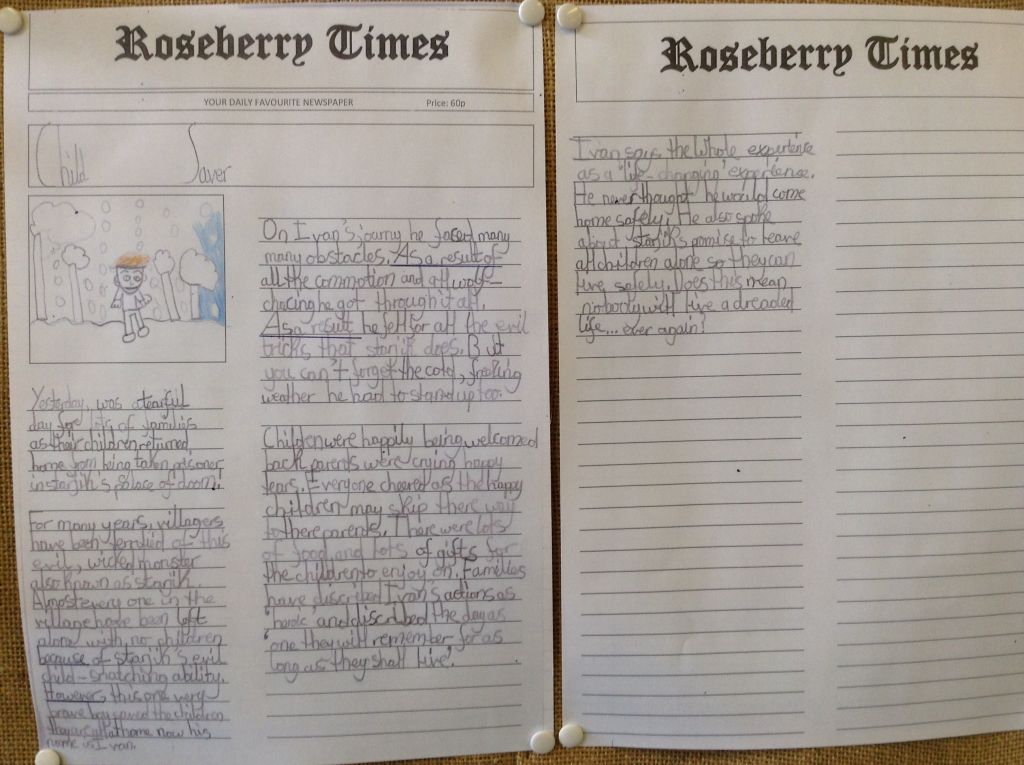 Roseberry Times
YOUR DAILY FAVOURITE NEWSPAPER Price: 60p
Child Saver
Yesterday, was a tearful
day for lots of families
as their children returned
home from being taken prisoner
in stanjik's palace of doom!
For many years, villagers
have been terrified of this
evil, wicked monster
also known as stanjik.
Almost every one in the
village have been left
along with no children
because of stanjik's evil
child-snatching ability.
However this one very
brave boy saved the children
they are all at home now his
name is Ivan.
On Ivan's journy he faced many
many obstacles. As a result of
all the commotion and all wolf-
chacing he got through it all.
As a result he fell for all the evil
tricks that stanjik does. But
you can't forget the cold, freezing
weather he had to stand up too.
Children were happily being welcomed
back parents were crying happy
tears. Everyone cheered as the happy
children may skip there way
to there parents. There were lots
of food and lots of gifts for
the children to enjoy on. Families
have discribed Ivan's actions as
'heroic' and discribed the day as
'one they will remember for as
long as they shall live'.
Roseberry Times
Ivan says the whole experience
as a 'life-changing' experience.
He never thought he would come
home safely. He also spoke
about stanjik's promise to leave
all children alone so they can
live safely. Does this mean
nobody will live a dreaded
life... ever again!